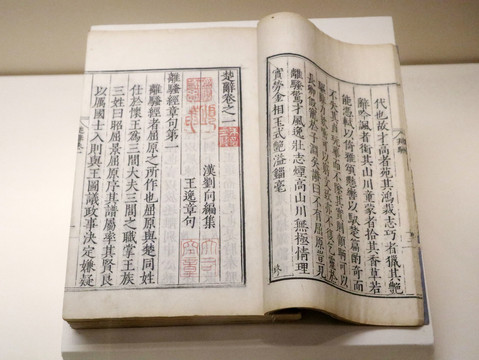 代也故才高者苑其鴻裁志巧者獵其艷
辭吟諷者銜其山川童蒙者拾其香草若
能憑軾以倚雅頌懸轡以馭楚篇酌奇而
不失其
墜其實則顧眄可以
矣讚曰不有屈原豈見
離騷驚才風逸壯志煙高山川無極情理
實勞金相玉式艷溢錙毫
楚辭卷之一
漢劉向編集
王逸章句
離騷經章句第一
離騷經者屈原之所作也屈原與楚同姓
仕於懷王爲三閭大夫三閭之職掌王族
三姓曰昭屈景屈原序其譜屬率其賢良
以厲國士入則與王圖議政事決定嫌疑